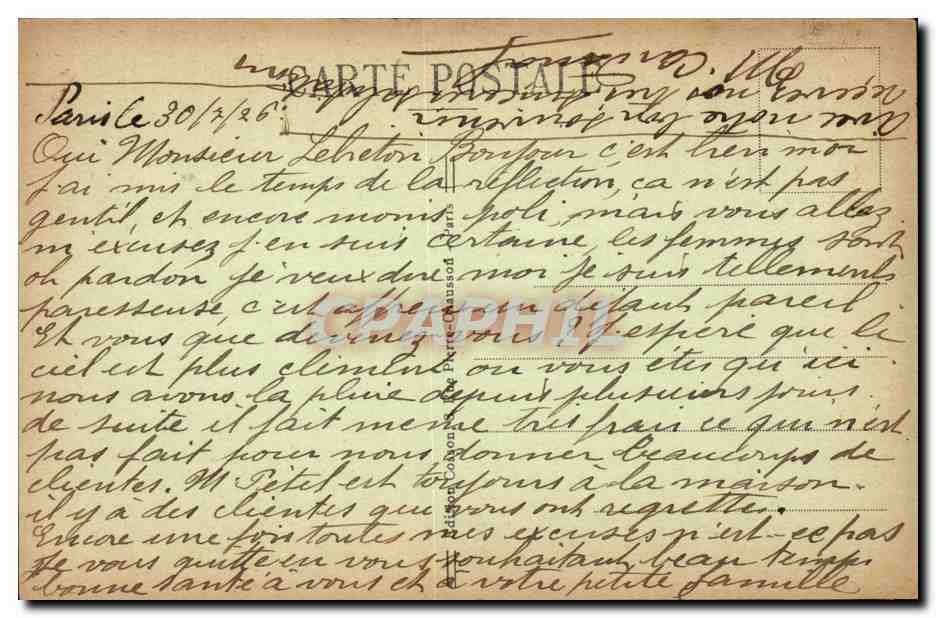 CARTE POSTALE
Paris le 30/7/26
Oui Monsieur Lebreton Bonjour c'est bien moi
j'ai mis le temps de la réflection, ca n'est pas
gentil, et encore moins poli, mais vous allez
m'excusez j'en suis certaine, les femmes sont
oh pardon je veux dire moi je suis tellements
paresseuse, c'est affreux un défaut pareil
Et vous que devenez vous? J'espère que le
ciel est plus climent ou vous etes qu'ici
nous avons la pluie depuis plusieurs jours
de suite il fait meme tres frais ce qui n'est
pas fait pour nous donner beaucoups de
clientes. M Petel est toujours à la maison
il y à des clientes qui vous ont regretter.
Encore une fois toutes mes excuses n'est-ce pas
Je vous quitte en vous souhaitant beau temps
bonne santé a vous et à votre petite famille
Edition Cosson Rue Pierre-Chausson Paris
CPAPHIL